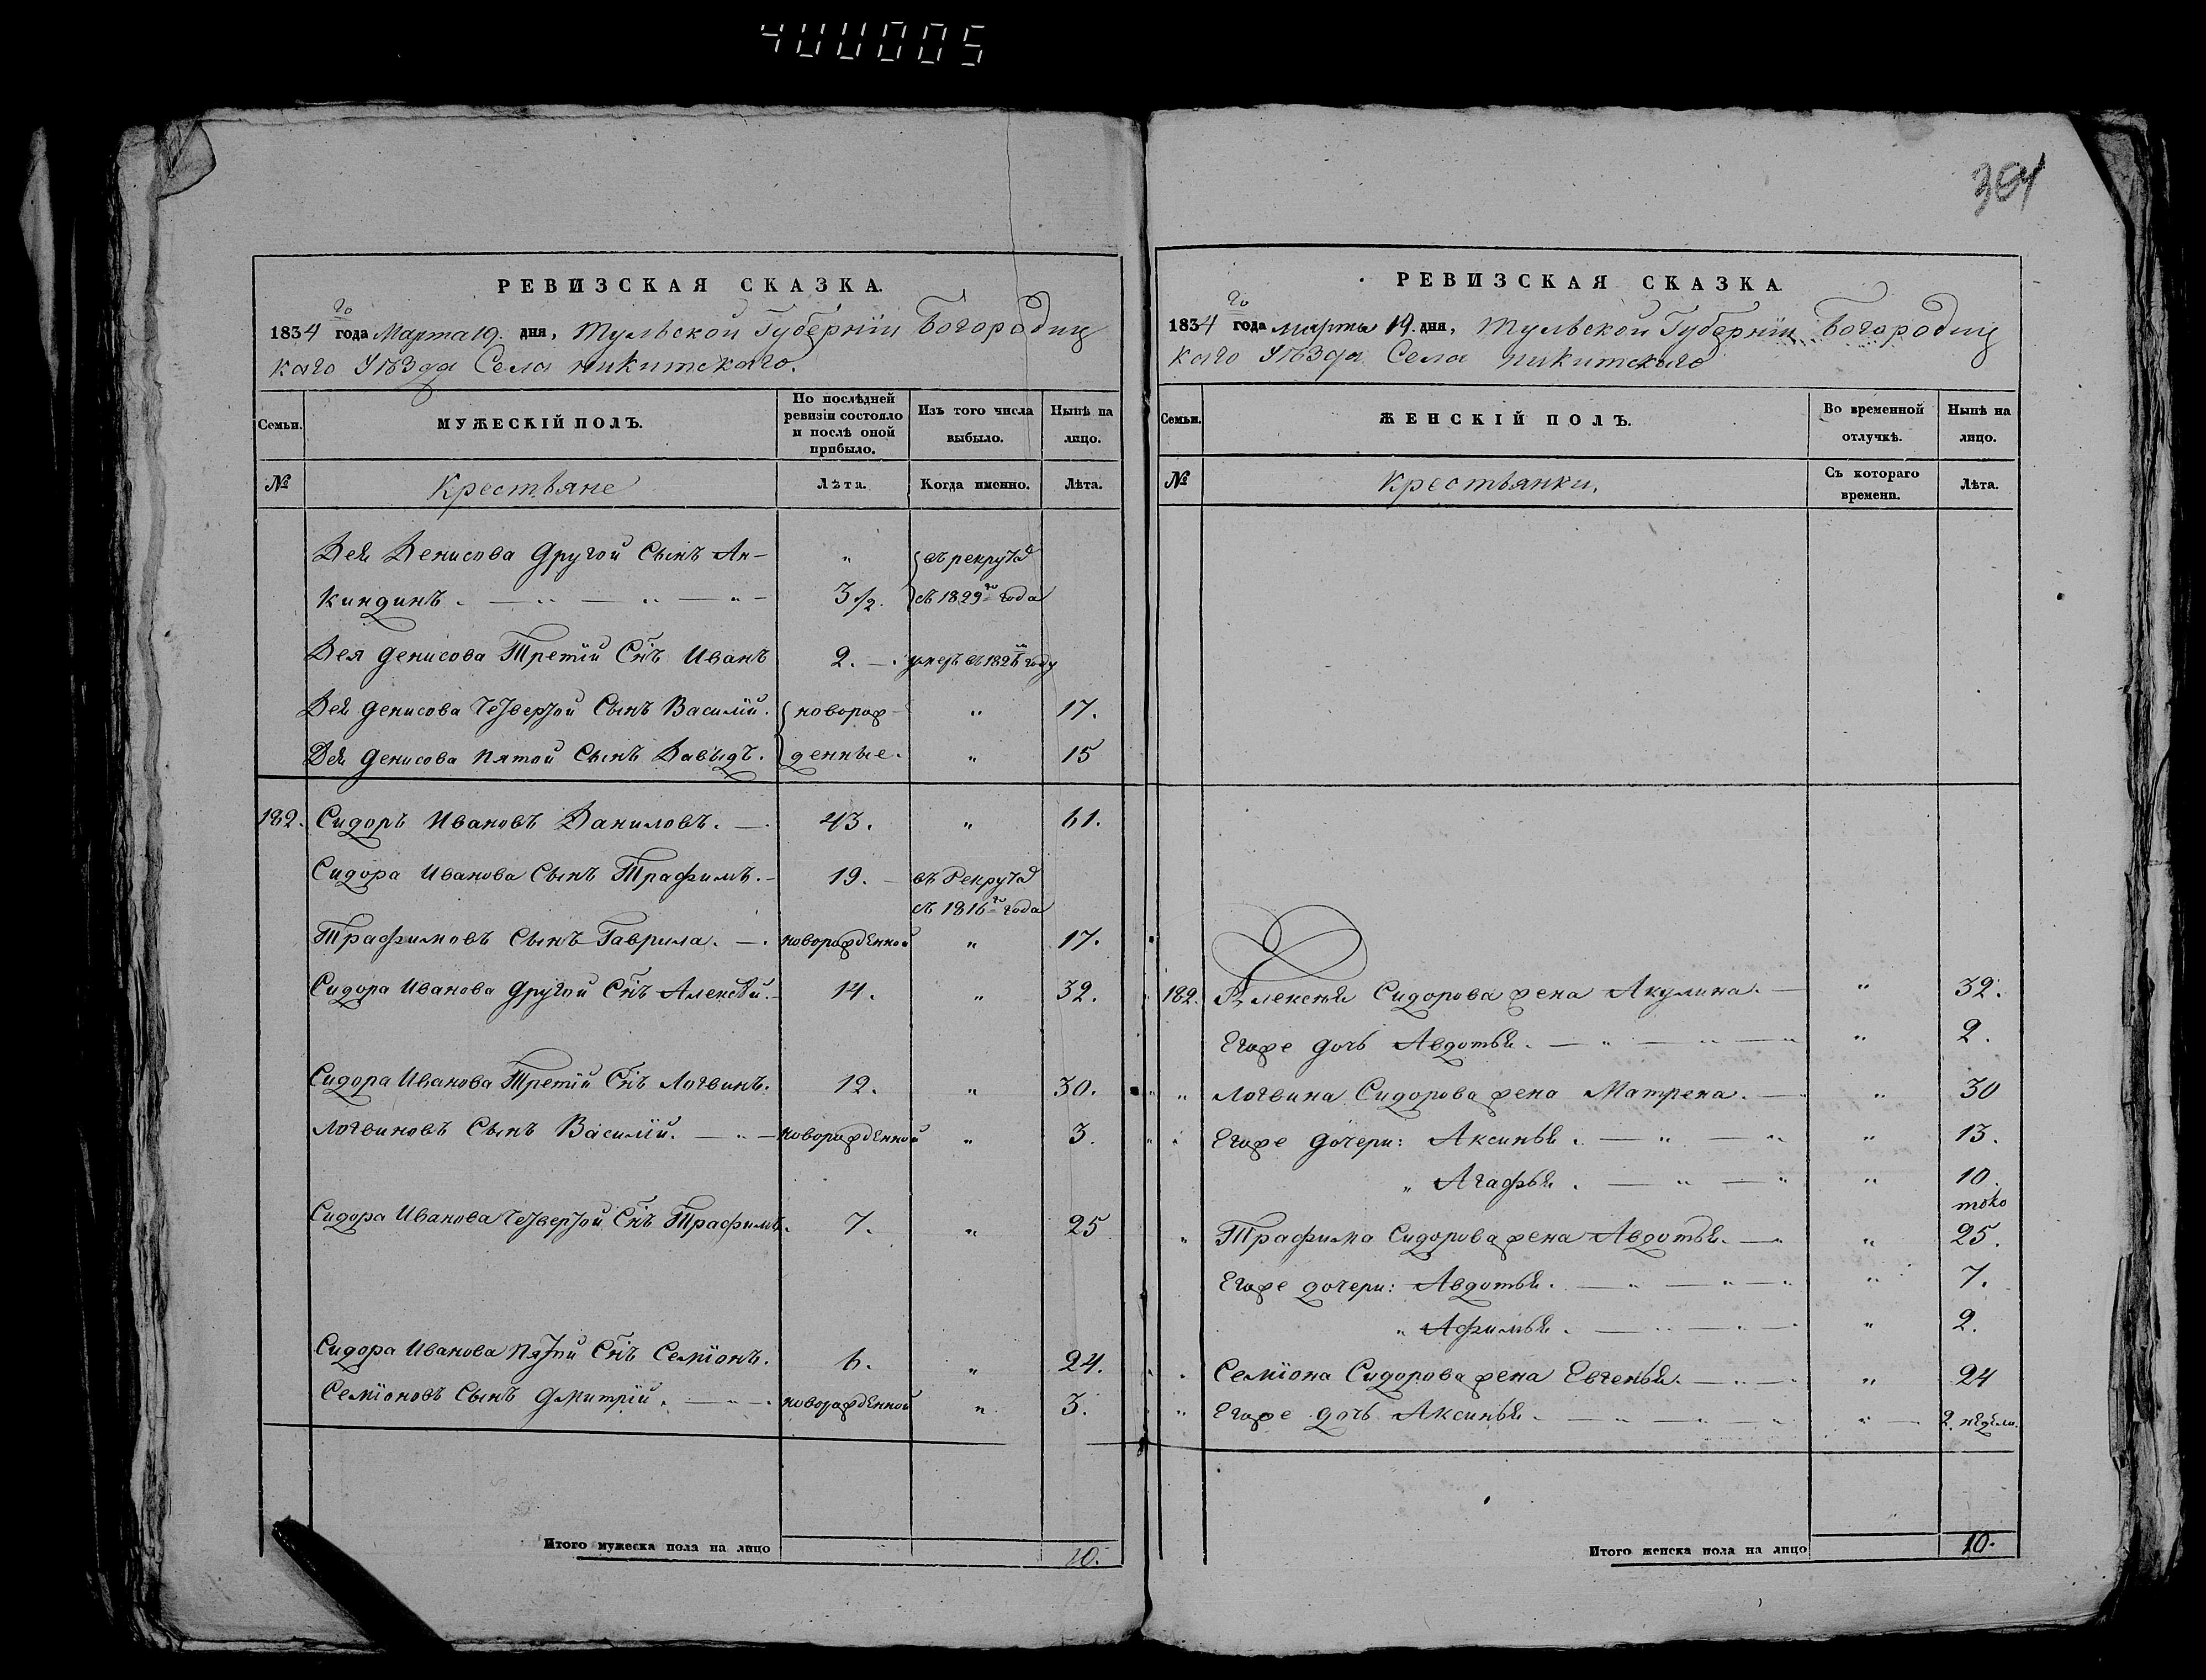 400005
354
РЕВИЗСКАЯ СКАЗКА.
1834го года Марта 19. дня, Тульской Губерніи Богородиц
каго Уѣзда Села никитскаго.
Семьи. МУЖЕСКІЙ ПОЛЪ. По послѣдней ревизіи состояло и послѣ оной прибыло. Изъ того числа выбыло. Нынѣ на лицо.
№ Крестьяне Лѣта. Когда именно. Лѣта.
Дея Денисова другой Сынъ Ан- " въ рекрутѣ
киндинъ. — " — " — " — 3 1/2. съ 1829го года
Дея денисова Третій Снъ Иванъ 2. —. умеръ въ 1826м году
Дея денисова четвертой Сынъ Василій. новорож- " 17.
Дея денисова пятой Сынъ Давыдъ. денные. " 15
182. Сидоръ Ивановъ Даниловъ. —. 43. " 61.
Сидора Иванова Сынъ Трафимъ. – 19. – въ Рекрутѣ
съ 1816го года
Трафимовъ Сынъ Гаврила. —. новорожденной " 17.
Сидора Иванова другой Снъ Алексѣй. 14. " 32.
Сидора Иванова Третій Снъ Логвинъ. 12. " 30.
Логвиновъ Сынъ Василій. — " — новорожденной " 3.
Сидора Иванова четвертой Снъ Трафимъ. 7. " 25
Сидора Иванова пятой Снъ Семіонъ. 6. " 24.
Семіоновъ Сынъ дмитрій. — " —. новорожденной " 3.
Итого мужеска пола на лицо 10.
РЕВИЗСКАЯ СКАЗКА.
1834го года марта 19. дня, Тульской Губерніи Богородиц
каго Уѣзда Села никитскаго
Семьи. ЖЕНСКІЙ ПОЛЪ. Во временной отлучкѣ. Нынѣ на лицо.
№ Крестьянки. Съ котораго времени. Лѣта.
182. Алексѣя Сидорова жена Акулина. — " 32.
Егоже дочь Авдотья. — " — " — " " 2.
" Логвина Сидорова жена Матрена. —. " 30
" Егоже дочери: Аксинья. — " — " " 13.
" Агафья. — " — " " 10.
токо
" Трафима Сидорова жена Авдотья. — " " 25.
Егоже дочери: Авдотья. — " — " — " " 7.
" Афимья. — " — " —. " 2.
" Семіона Сидорова жена Евгенья. — " —. " 24
" Егоже дочь Аксинья. — " — " — " " — 2. недели.
Итого женска пола на лицо 10.